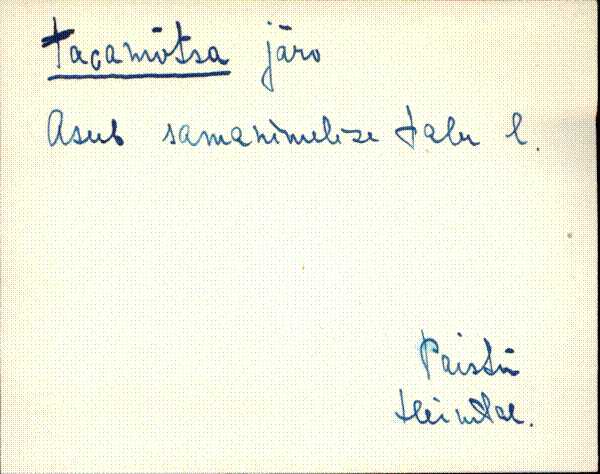 Taǥamõtsa järv
Asub samanimelise talu l.
Paistu
Heimtal.